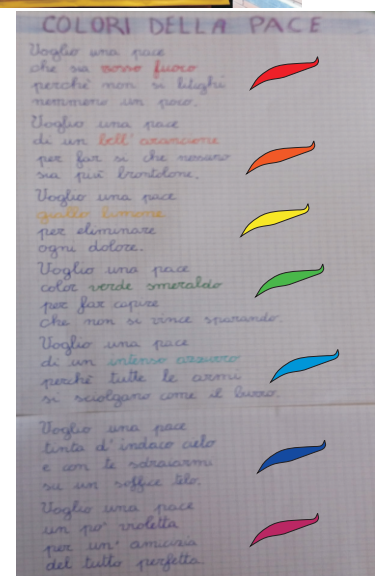 COLORI DELLA PACE
Voglio una pace
che sia rosso fuoco
perché non si litighi
nemmeno un poco.
Voglio una pace
di un bell'arancione
per far si che nessuno
sia più brontolone.
Voglio una pace
giallo limone
per eliminare
ogni dolore.
Voglio una pace
color verde smeraldo
per far capire
che non si vince sparando.
Voglio una pace
di un intenso azzurro
perché tutte le armi
si sciolgano come il burro.
Voglio una pace
tinta d'indaco cielo
e con te sdraiarmi
su un soffice telo.
Voglio una pace
un po' violetta
per un'amicizia
del tutto perfetta.